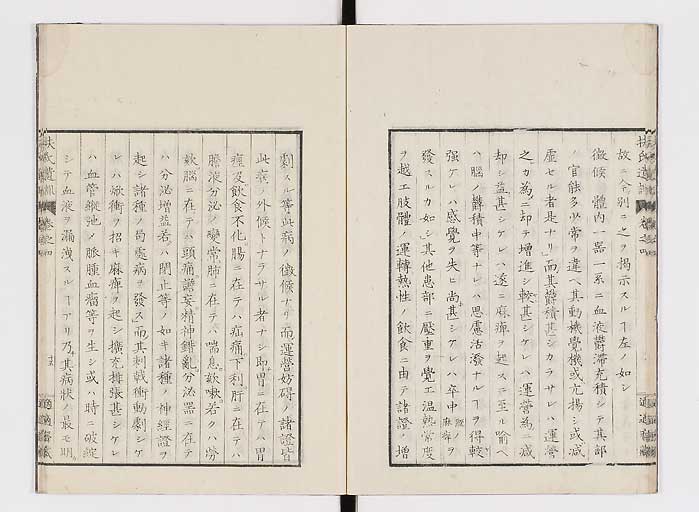 故ニ今別ニ之ヲ掲示スルヿ左ノ如シ
徴候 體内一器一系ニ血液欝滞充積シテ其部
ノ官能多少常ヲ違ヘ其動機覺機或亢揚シ或减
虚セル者是ナリ」而其欝積甚シカラサレハ運營
之カ為ニ却テ增進シ較甚シケレハ運營為ニ减
却シ益甚シケレハ遂ニ麻痺ヲ起スニ至ル喻ヘ
ハ腦ノ欝積中等ナレハ思慮活潑ナルヿヲ得較
强ケレハ感覺ヲ失ヒ尚甚シケレハ卒中 麻痺ヲ
發スルカ如シ」其他患部ニ壓重ヲ覺エ温熱常度
ヲ越エ肢體ノ運轉熱性ノ飲食ニ由テ諸證ノ增
劇スル等此病ノ徴候ナリ而運營妨碍ノ諸證皆
此病ノ外候トナラサル者ナシ即胃ニ在テハ胃
痙及飲食不化腸ニ在テハ疝痛下利肝ニ在テハ
膽液分泌ノ變常肺ニ在テハ喘息欬嗽若クハ勞
欬腦ニ在テハ頭痛譫妄精神錯亂分泌器ニ在テ
ハ分泌增益若ハ閉止等ノ如キ諸種ノ神經證ヲ
起シ諸種ノ局處病ヲ發ス」而其刺戟衝動劇シケ
レハ焮衝ヲ招キ麻痺ヲ起シ擴充排張甚シケレ
ハ血管縱弛ノ脈腫血瘤等ヲ生シ或ハ時ニ破綻
シテ血液ヲ漏洩スルヿアリ乃其病狀ノ最モ明
扶氏遺訓 卷之四